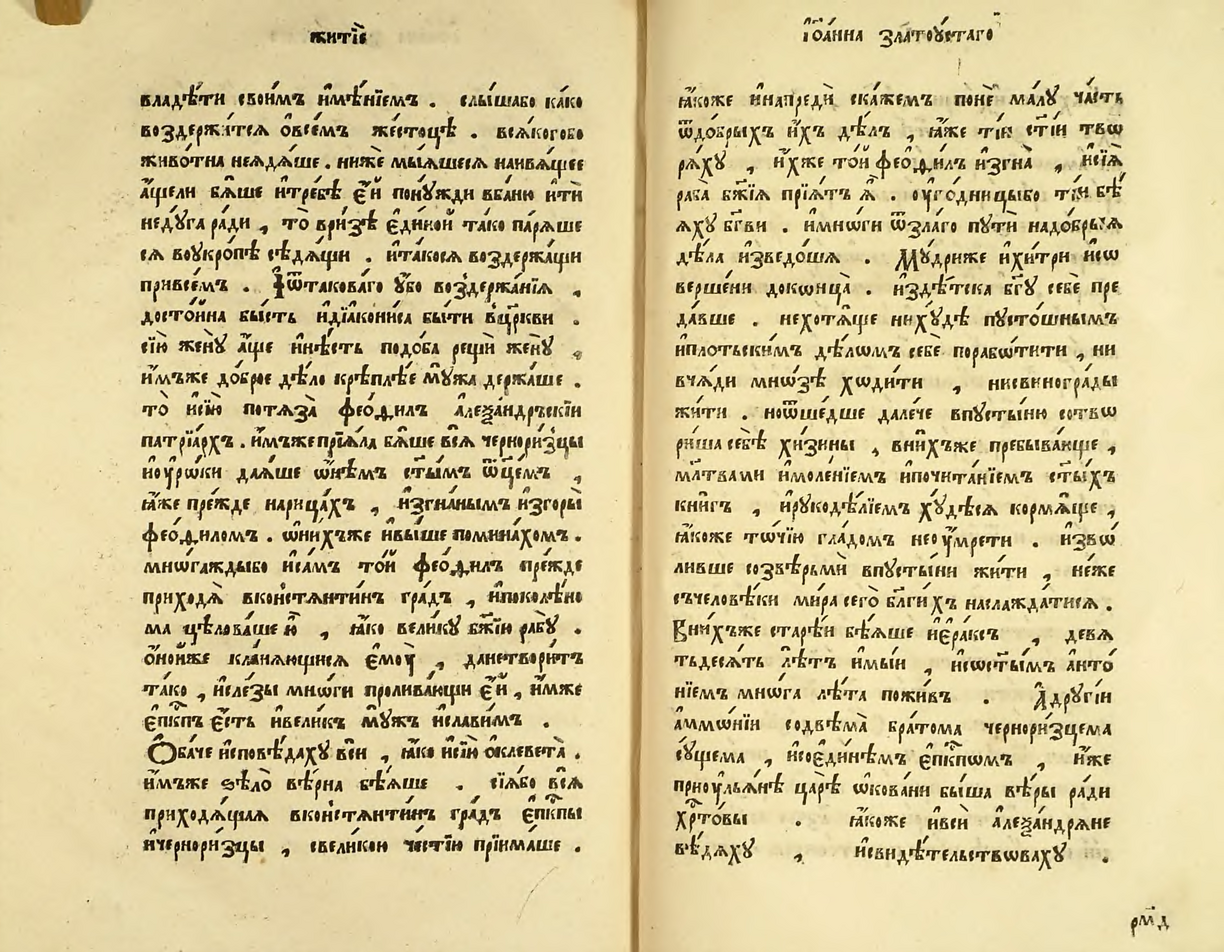 житїе
владѣ́ти свои́мъ и҆мѣ́нїемъ . слы́шабо ка́ко
воздержи́тсѧ ѡ҆всѐмъ же́стоцѣ . всѧ́когобо
живо́тна неѧ́дѧше . ниже́ мы́ѧшесѧ наивѧ́щее
а҆́щели бѧ́ше и҆тре́бѣ є҆́й пону́жди вба́ню и҆тѝ
неду́га ра́ди , то̀ ври́зѣ є҆ди́ной та́ко па́рѧше
сѧ воукро́пѣ сѣдѧ́щи . и҆та́косѧ воздержа́щи
привсе́мъ . І҆ѿтакова́го у҆́бо воздержа́нїѧ ,
досто́йна бы́сть и҆дїа́кониса бы́ти вцр҃кви .
сїю̀ жену̀ а҆́ще и҆нѣ́сть подоба рещѝ жену̀ ,
и҆́мъже до́брое дѣ́ло крѣ́плѣе му́жа держа́ше .
то̀ и҆сїю̀ потѧза̀ феѻ́дилъ а҆леѯа́ндръскїи
патрїа́рхъ . и҆́мъже прїѧ́ла бѧ́ше всѧ̀ черноризцы
и҆оуро́ки даѧ́ше ѡ҆нѣ́мъ ст҃ы́мъ ѿцє́мъ ,
ꙗ҆́же пре́жде нарица́хъ , и҆згна́нымъ изгоры̀
феѻ́диломъ . ѡ҆ни́хъже и҆вы́ше помина́хомъ .
мнѡга́ждыбо и҆са́мъ то́й феѻ́дилъ пре́жде
приходѧ̀ вконстѧнти́нъ гра́дъ , и҆поколѣ́но
ма цѣлова́ше ю҆̀ , ꙗ҆́ко вели́ку бж҃їю рабу̀ .
ѻ҆но́йже кла́нѧющисѧ є҆моу̀ , данетвори́тъ
та́ко , и҆сле́зы мнѡ́ги пролива́ющи є҆́й , и҆́мже
є҆пкпъ є҆́сть и҆вели́къ му́жъ и҆сла́вимъ .
Ѻ҆́баче и҆сповѣ́даху всѝ , ꙗ҆́ко и҆сїю̀ ѻ҆клевета̀ .
и҆́мъже ѕѣло̀ вѣ́рна бѣ́ѧше . сїѧ́бо всѧ̀
приходѧ́щаѧ вконстѧнти́нъ гра́дъ є҆пкпы
и҆чернори́зцы , свели́кою че́стїю прїима́ше .
І҆ѻа́нна златоу́стаго
ꙗ҆́коже и҆напредѝ ска́жемъ понѐ ма́лу ча́сть
ѿдо́брыхъ и҆́хъ дѣ́лъ , ꙗ҆́же тїи ст҃їи твѡ
рѧ́ху , и҆́хже то́й феѻ́дилъ и҆згна̀ , и҆сїѧ̀
раба̀ бж҃їѧ прїѧ́тъ ѧ҆̀ . оуго́дницыбо тїи бѣ́
ѧху бг҃ви . и҆мнѡ́ги ѿзла́го путѝ надо́брыѧ
дѣ́ла и҆зведо́шѧ . Му́дриже и҆хи́три и҆сѡ
верше́ни доконца̀ . и҆здѣ́тска бг҃у себѐ пре
да́вше . нехотѧ́ще нихудѣ̀ пусто́шнымъ
и҆пло́тьскимъ дѣ́лѡмъ себѐ порабѡти́ти , ни
вчѧ́ди мнѡ́зѣ хѡди́ти , нисвиногра́ды
жи́ти . ноѿше́дше дале́че впусты́ню сотвѡ
ри́ша себѣ̀ хи́зины , вни́хъже пребыва́юще ,
мл҃твами и҆моле́нїемъ и҆почита́нїемъ ст҃ы́хъ
кни́гъ , и҆рукодѣ́лїемъ ху́дѣсѧ кормѧ́ще ,
ꙗ҆́коже то́чїю гла́домъ неоумре́ти . и҆звѡ
ливше созвѣрьмѝ впусты́ни жи́ти , не́же
счеловѣ́ки ми́ра сего̀ бл҃ги́хъ наслажда́тисѧ .
Вни́хъже старѣ́и бѣ́ѧше и҆є҆ра́ксъ , девѧ
тьдесѧ́тъ лѣ́тъ и҆мы́и , и҆сост҃ы́мъ а҆нто́
нїемъ мнѡ́га лѣ́та пожи́въ . А҆дру́гїи
а҆ммо́нїи содвѣма̀ бра́тома чернори́зцема
су́щема , и҆соеди́нѣмъ є҆пкпомъ , и҆́же
приоулья́нѣ царѣ̀ ѡ҆ко́вани бы́ша вѣ́ры ра́ди
хр҃то́вы . ꙗ҆́коже и҆всѝ а҆леѯа́ндрѧне
вѣ́дѧху , и҆свидѣ́тельствоваху .
рм҃д